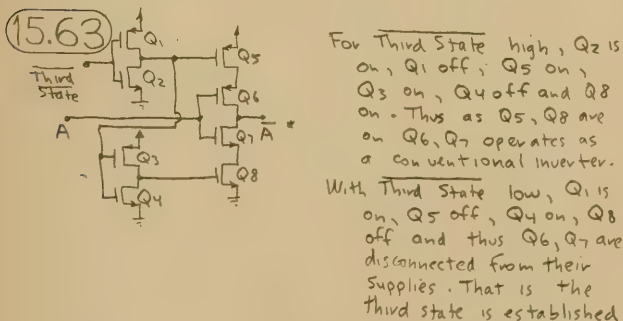 15.63
Q1
Q2
Third
State
Q5
Q6
A
A *
Q7
Q3
Q8
Q4
For Third State high, Q2 is
on, Q1 off, Q5 on,
Q3 on, Q4 off and Q8
on. Thus as Q5, Q8 are
on Q6, Q7 operates as
a conventional inverter.
With Third State low, Q1 is
on, Q5 off, Q4 on, Q8
off and thus Q6, Q7 are
disconnected from their
supplies. That is the
third state is established